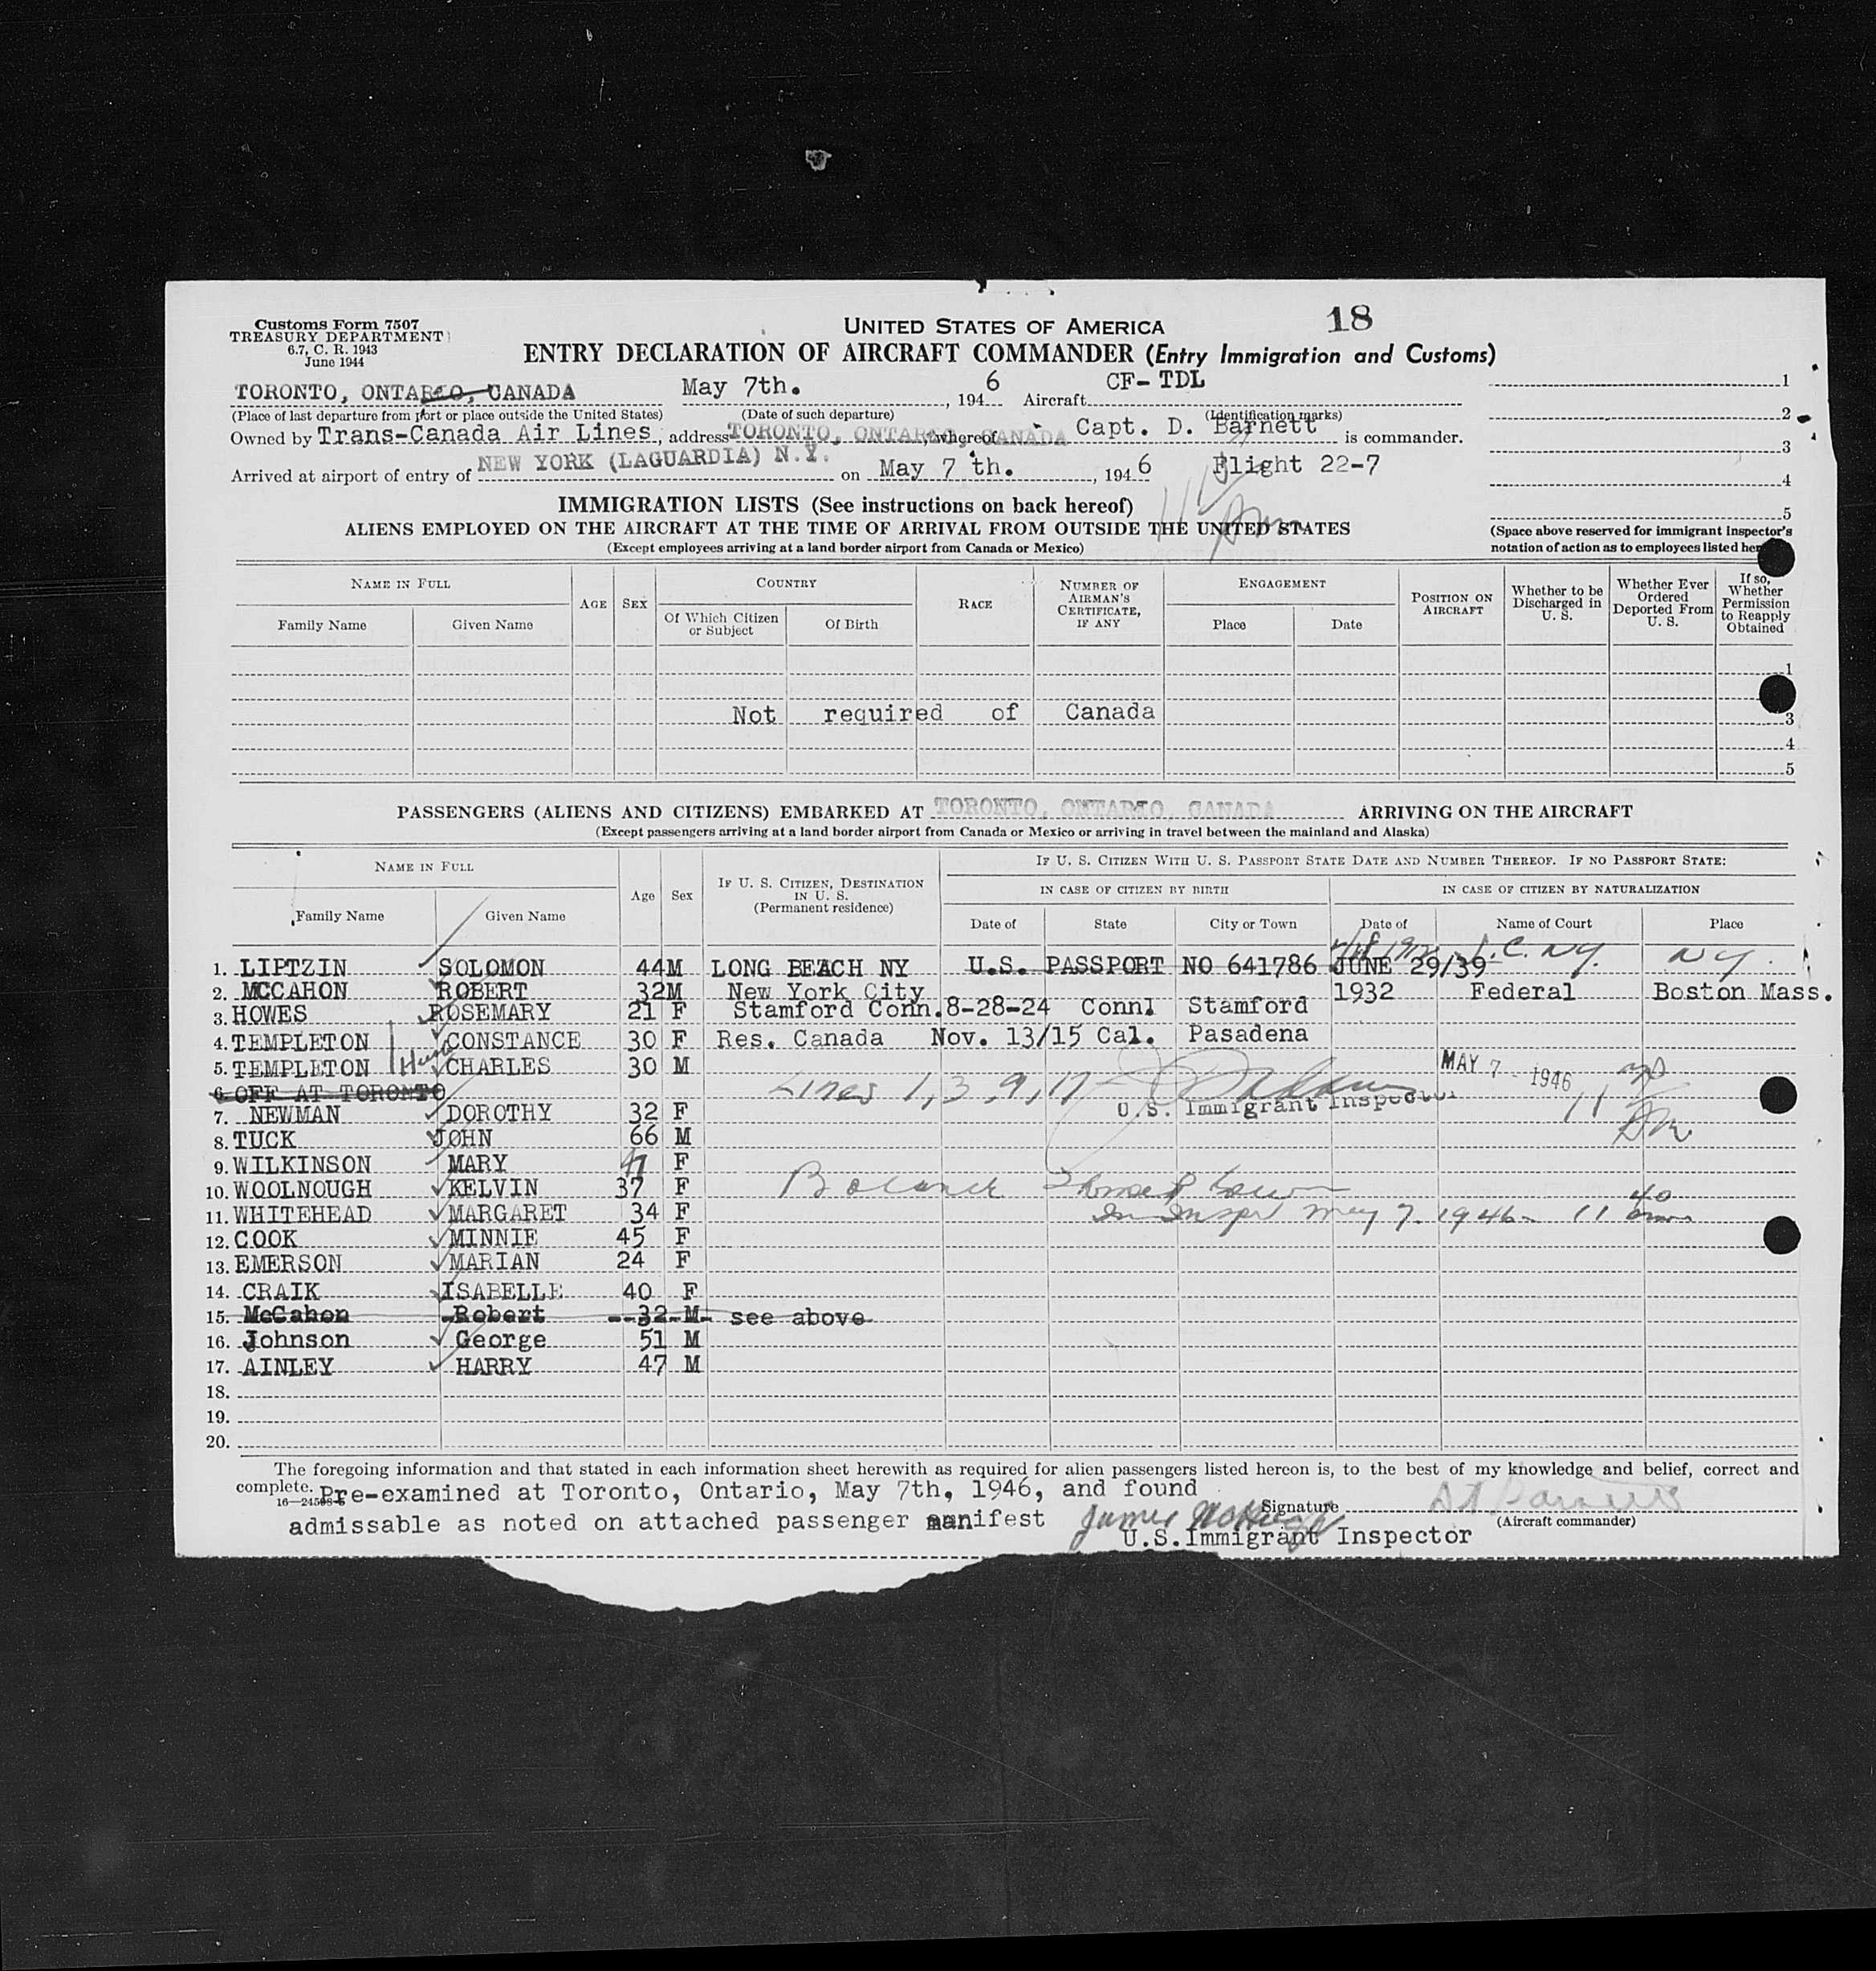 Customs Form 7507
TREASURY DEPARTMENT
6.7, C. R. 1943
June 1944
UNITED STATES OF AMERICA
18
ENTRY DECLARATION OF AIRCRAFT COMMANDER (Entry Immigration and Customs)
TORONTO, ONTARIO, CANADA May 7th. , 194 6 Aircraft CF- TDL 1
(Place of last departure from port or place outside the United States) (Date of such departure) (Identification marks) 2
Owned by Trans-Canada Air Lines , address TORONTO, ONTARIO, CANADA , whereof Capt. D. Barnett is commander. 3
Arrived at airport of entry of NEW YORK (LAGUARDIA) N.Y. on May 7 th. , 194 6 Flight 22-7 4
5
IMMIGRATION LISTS (See instructions on back hereof)
ALIENS EMPLOYED ON THE AIRCRAFT AT THE TIME OF ARRIVAL FROM OUTSIDE THE UNITED STATES
(Except employees arriving at a land border airport from Canada or Mexico)
(Space above reserved for immigrant inspector's
notation of action as to employees listed
NAME IN FULL
Family Name Given Name
AGE SEX
COUNTRY
Of Which Citizen or Subject Of Birth
RACE
NUMBER OF AIRMAN'S CERTIFICATE, IF ANY
ENGAGEMENT
Place Date
POSITION ON AIRCRAFT
Whether to be Discharged in U. S.
Whether Ever Ordered Deported From U. S.
If so, Whether Permission to Reapply Obtained
1
Not required of Canada 3
4
5
PASSENGERS (ALIENS AND CITIZENS) EMBARKED AT TORONTO, ONTARIO, CANADA ARRIVING ON THE AIRCRAFT
(Except passengers arriving at a land border airport from Canada or Mexico or arriving in travel between the mainland and Alaska)
NAME IN FULL
Family Name Given Name
Age Sex
IF U. S. CITIZEN, DESTINATION IN U. S. (Permanent residence)
IF U. S. CITIZEN WITH U. S. PASSPORT STATE DATE AND NUMBER THEREOF. IF NO PASSPORT STATE:
IN CASE OF CITIZEN BY BIRTH IN CASE OF CITIZEN BY NATURALIZATION
Date of State City or Town Date of Name of Court Place
1. LIPTZIN SOLOMON 44 M LONG BEACH NY U.S. PASSPORT NO 641786 JUNE 29/39 N.Y. NY
2. MCCAHON ROBERT 32 M New York City 1932 Federal Boston Mass.
3. HOWES ROSEMARY 21 F Stamford Conn. 8-28-24 Conn. Stamford
4. TEMPLETON CONSTANCE 30 F Res. Canada Nov. 13/15 Cal. Pasadena
5. TEMPLETON CHARLES 30 M MAY 7 - 1946
6. OFF AT TORONTO Lines 1, 3, 9, 17
7. NEWMAN DOROTHY 32 F U.S. Immigrant Inspector 11
8. TUCK JOHN 66 M
9. WILKINSON MARY F
10. WOOLNOUGH KELVIN 37 F Balance
11. WHITEHEAD MARGARET 34 F Inspr May 7. 1946 - 11 40
12. COOK MINNIE 45 F
13. EMERSON MARIAN 24 F
14. CRAIK ISABELLE 40 F
15. McCahon Robert 32 M see above
16. Johnson George 51 M
17. AINLEY HARRY 47 M
18.
19.
20.
The foregoing information and that stated in each information sheet herewith as required for alien passengers listed hereon is, to the best of my knowledge and belief, correct and
complete. Pre-examined at Toronto, Ontario, May 7th, 1946, and found
Signature
admissable as noted on attached passenger manifest James (Aircraft commander)
U.S.Immigrant Inspector